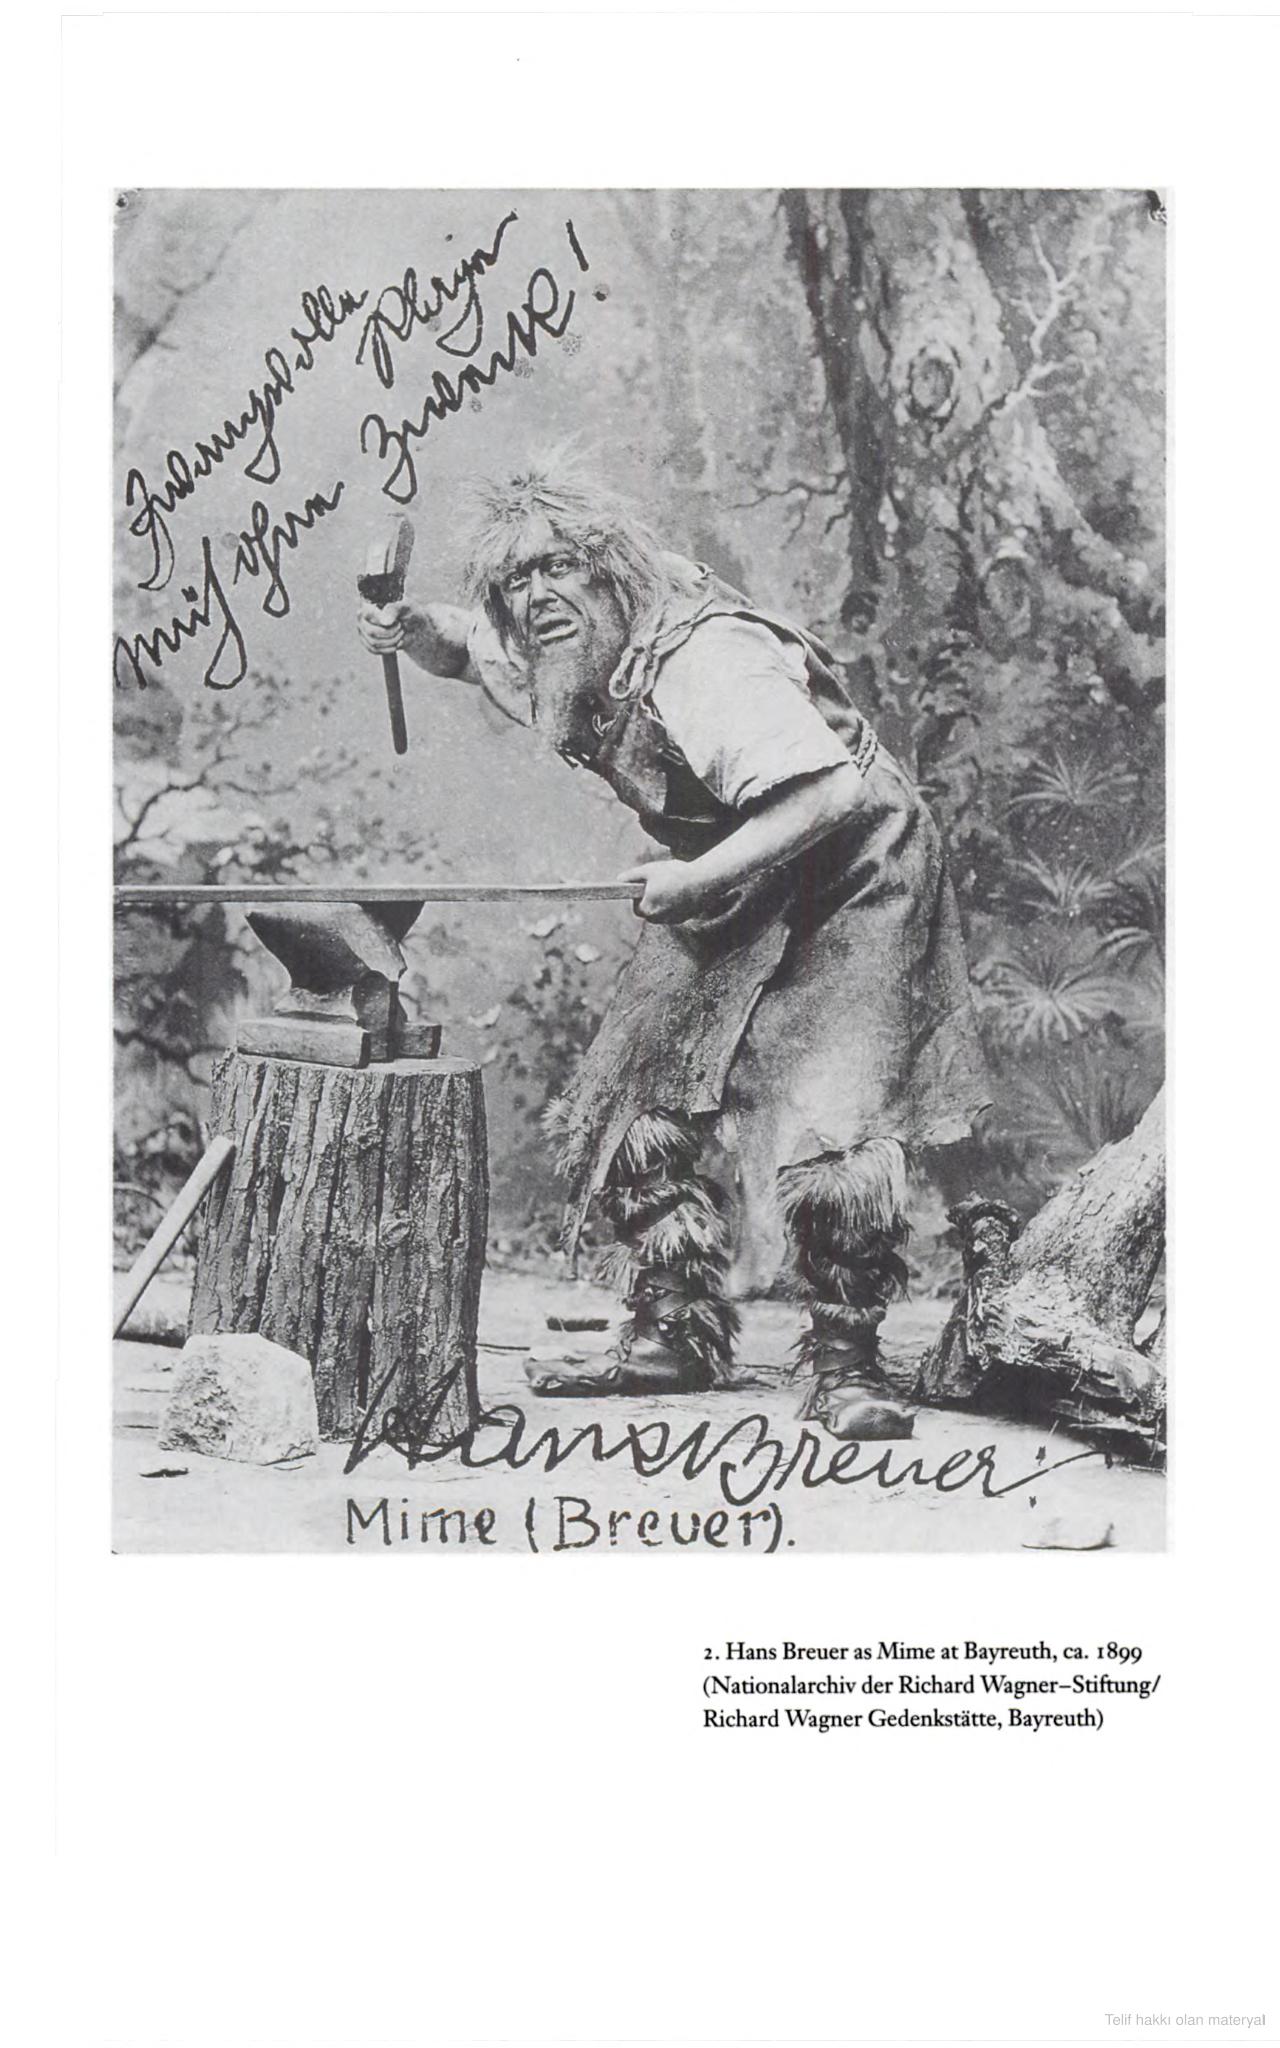 Zwangvolle Plage
Müh ohne Zweck!
Hans Breuer
Mime (Breuer).
2. Hans Breuer as Mime at Bayreuth, ca. 1899
(Nationalarchiv der Richard Wagner–Stiftung/
Richard Wagner Gedenkstätte, Bayreuth)
Telif hakkı olan materyal